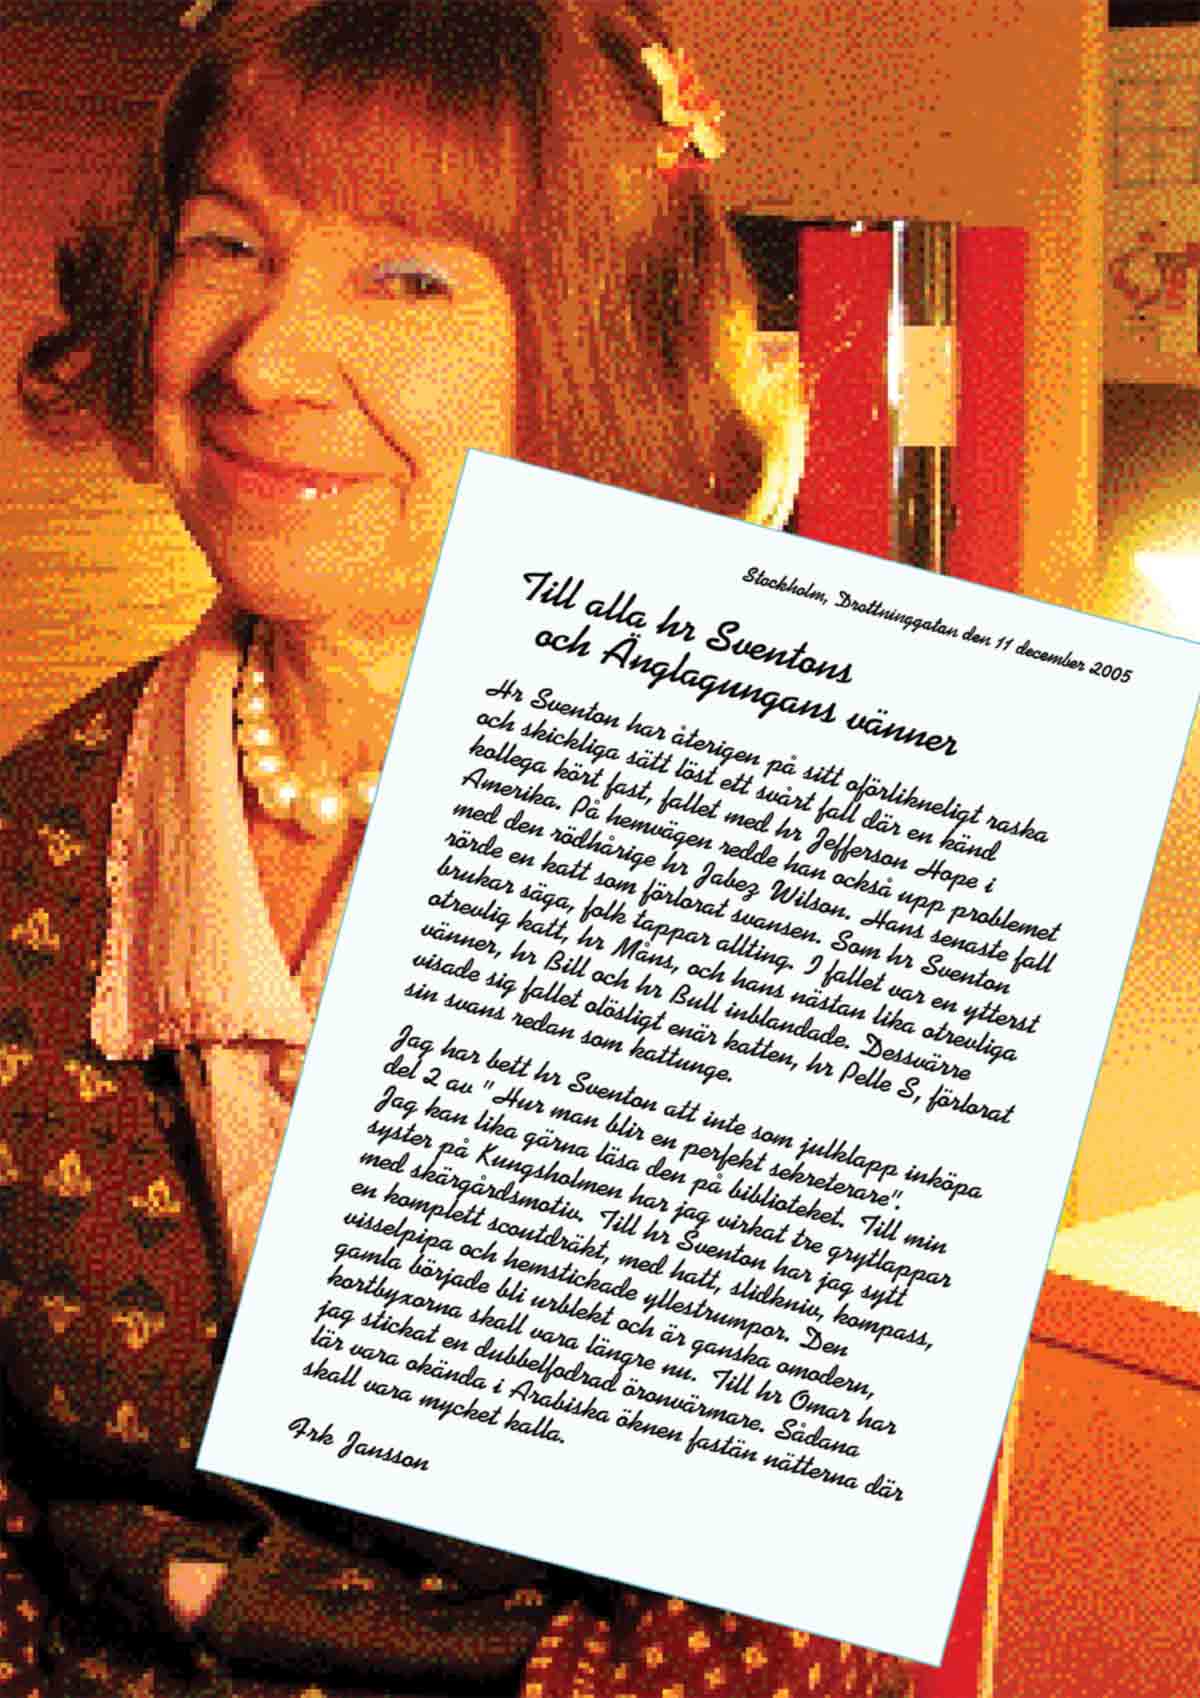 Stockholm, Drottninggatan den 11 december 2005
Till alla hr Sventons
och Änglagungans vänner
Hr Sventon har återigen på sitt oförlikneligt raska
och skickliga sätt löst ett svårt fall där en känd
kollega kört fast, fallet med hr Jefferson Hope i
Amerika. På hemvägen redde han också upp problemet
med den rödhårige hr Jabez Wilson. Hans senaste fall
rörde en katt som förlorat svansen. Som hr Sventon
brukar säga, folk tappar allting. I fallet var en ytterst
otrevlig katt, hr Måns, och hans nästan lika otrevliga
vänner, hr Bill och hr Bull inblandade. Dessvärre
visade sig fallet olösligt enär katten, hr Pelle S, förlorat
sin svans redan som kattunge.
Jag har bett hr Sventon att inte som julklapp inköpa
del 2 av "Hur man blir en perfekt sekreterare".
Jag kan lika gärna läsa den på biblioteket. Till min
syster på Kungsholmen har jag virkat tre grytlappar
med skärgårdsmotiv. Till hr Sventon har jag sytt
en komplett scoutdräkt, med hatt, slidkniv, kompass,
visselpipa och hemstickade yllestrumpor. Den
gamla började bli urblekt och är ganska omodern,
kortbyxorna skall vara längre nu. Till hr Omar har
jag stickat en dubbelfodrad öronvärmare. Sådana
lär vara okända i Arabiska öknen fastän nätterna där
skall vara mycket kalla.
Frk Jansson